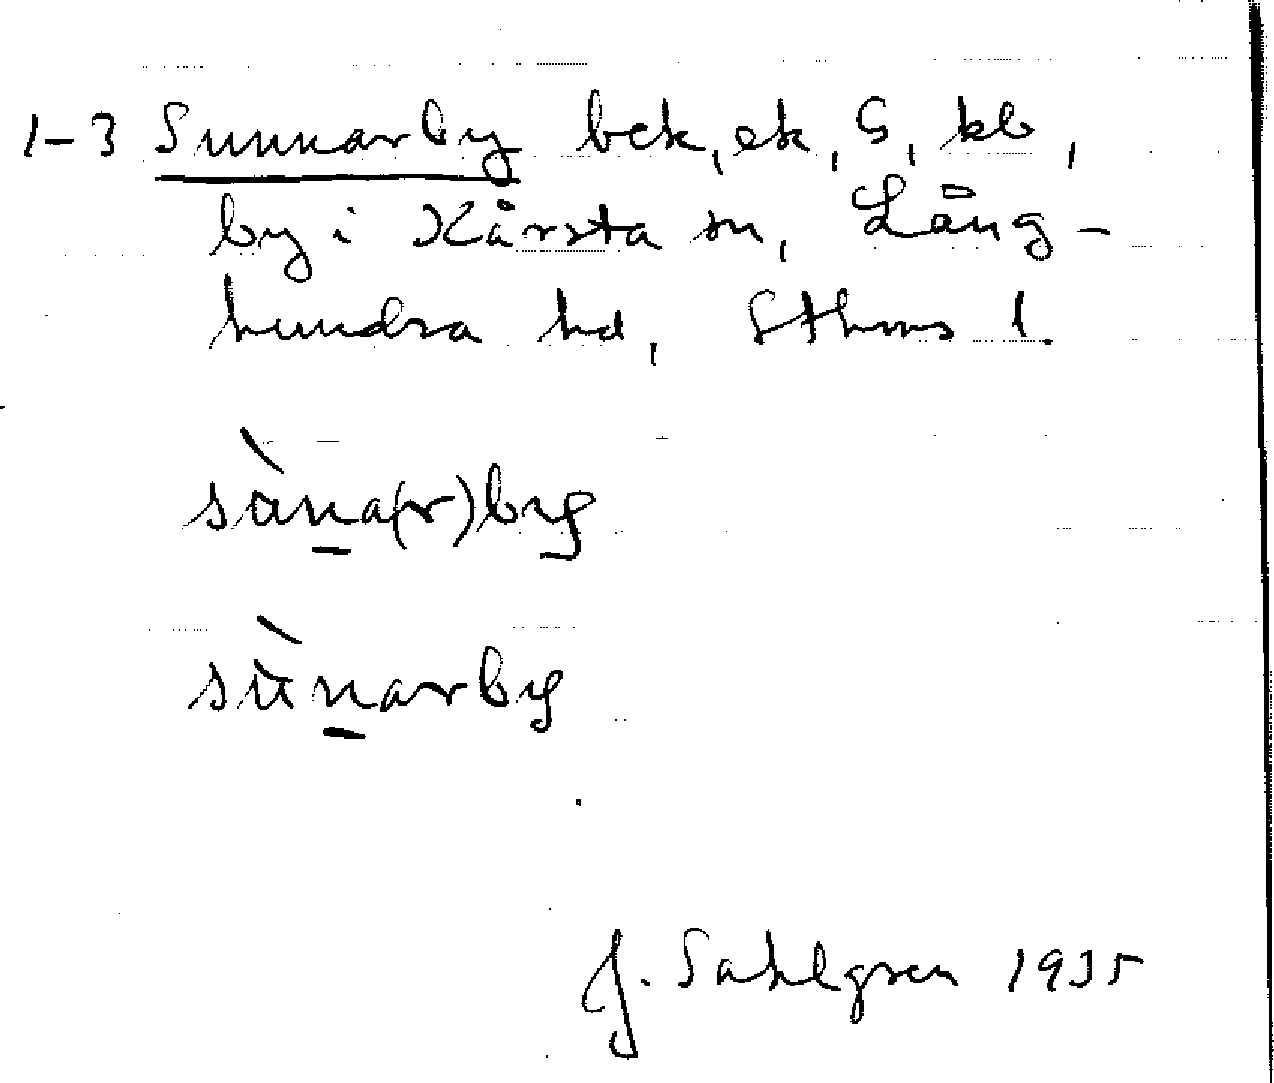 1-3 Sunnarby bek, ek, G, kb,
by i Kårsta sn, Lång-
hundra hd, Sthms l.
sàna(r)by
sùnarby
J. Sahlgren 1935